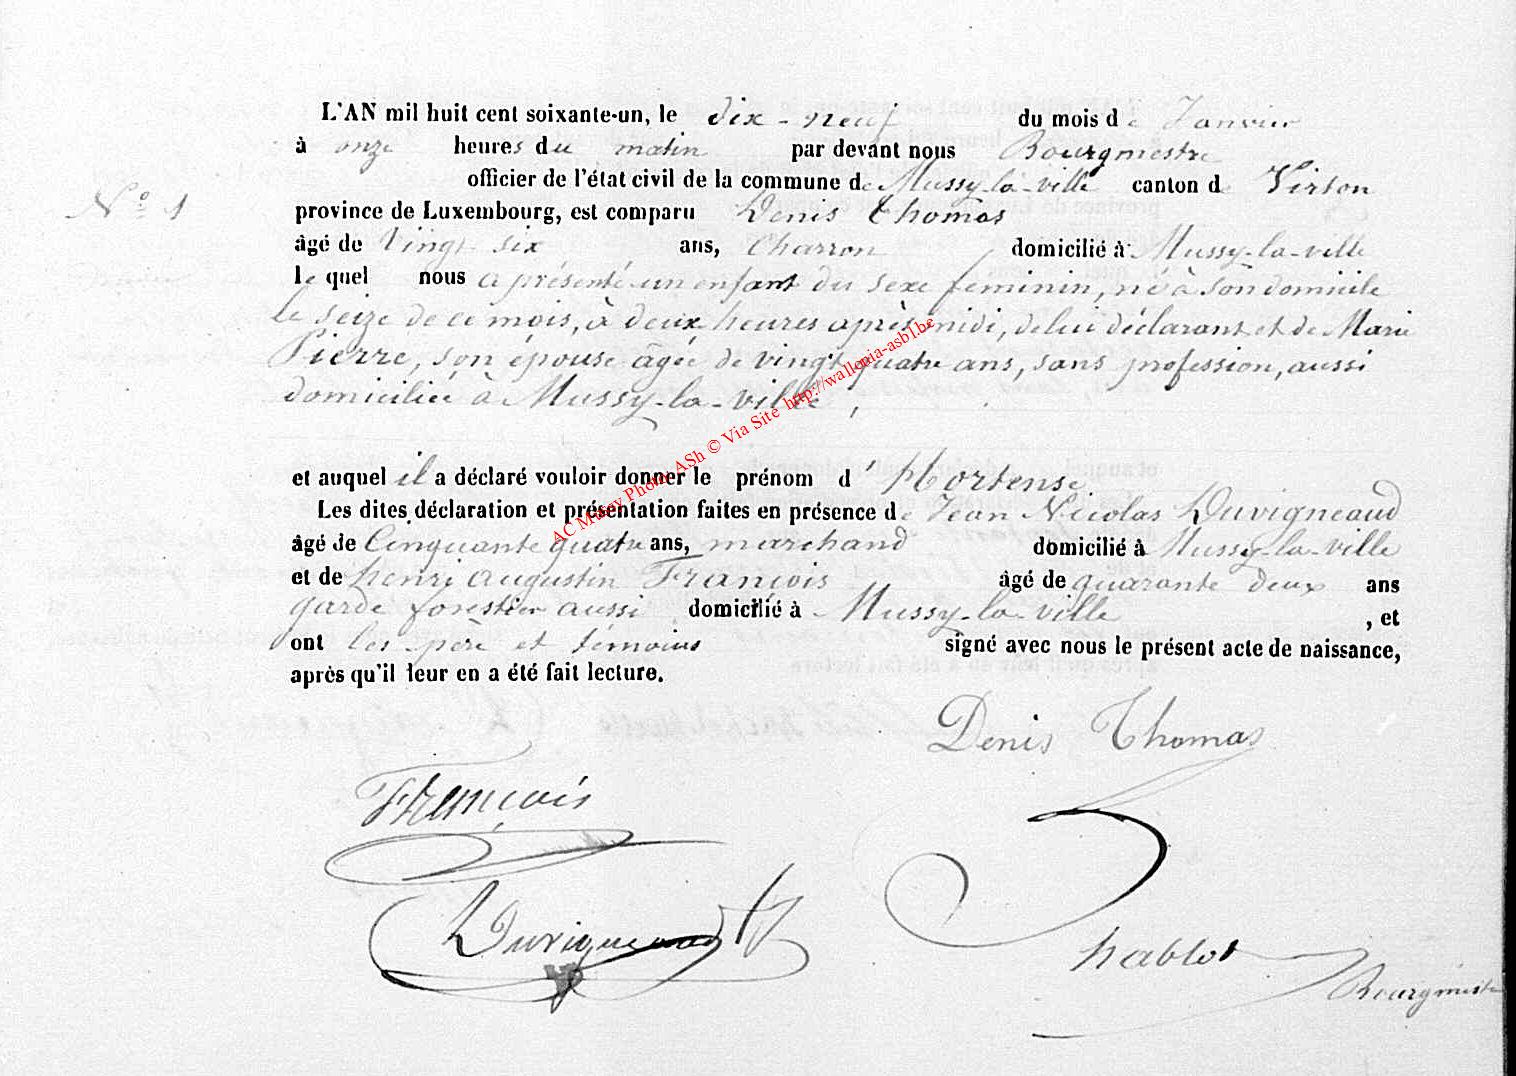 L'AN mil huit cent soixante-un, le dix-neuf du mois de Janvier
à onze heures du matin par devant nous Bourgmestre
officier de l'état civil de la commune de Mussy-la-ville canton de Virton
N° 1
province de Luxembourg, est comparu Denis Thomas
âgé de Vingt-six ans, Charron domicilié à Mussy-la-ville
lequel nous a présenté un enfant du sexe féminin, né à son domicile
le seize de ce mois, à deux heures après-midi, de lui déclarant et de Marie
Pierre, son épouse âgée de vingt quatre ans, sans profession, aussi
domiciliée à Mussy-la-ville,
et auquel il a déclaré vouloir donner le prénom d'Hortense
Les dites déclaration et présentation faites en présence de Jean Nicolas Duvigneaud
âgé de Cinquante quatre ans, marchand domicilié à Mussy-la-ville
et de henri augustin François âgé de quarante deux ans
garde forestier aussi domicilié à Mussy-la-ville, et
ont les père et témoins signé avec nous le présent acte de naissance,
après qu'il leur en a été fait lecture.
Denis Thomas
François
Duvigneaud
Chablot
Bourgmestre
AC Mussy Photo: ASh © Via Site http://wallonia-asbl.be